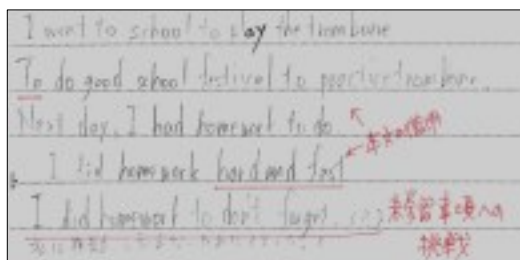 I went to school to play the trombone
To do good school festival to practice trombone.
Next day, I had homework to do
本文の借用
I did homework hard and fast
I did homework to don't forget.
未習事項への
挑戦